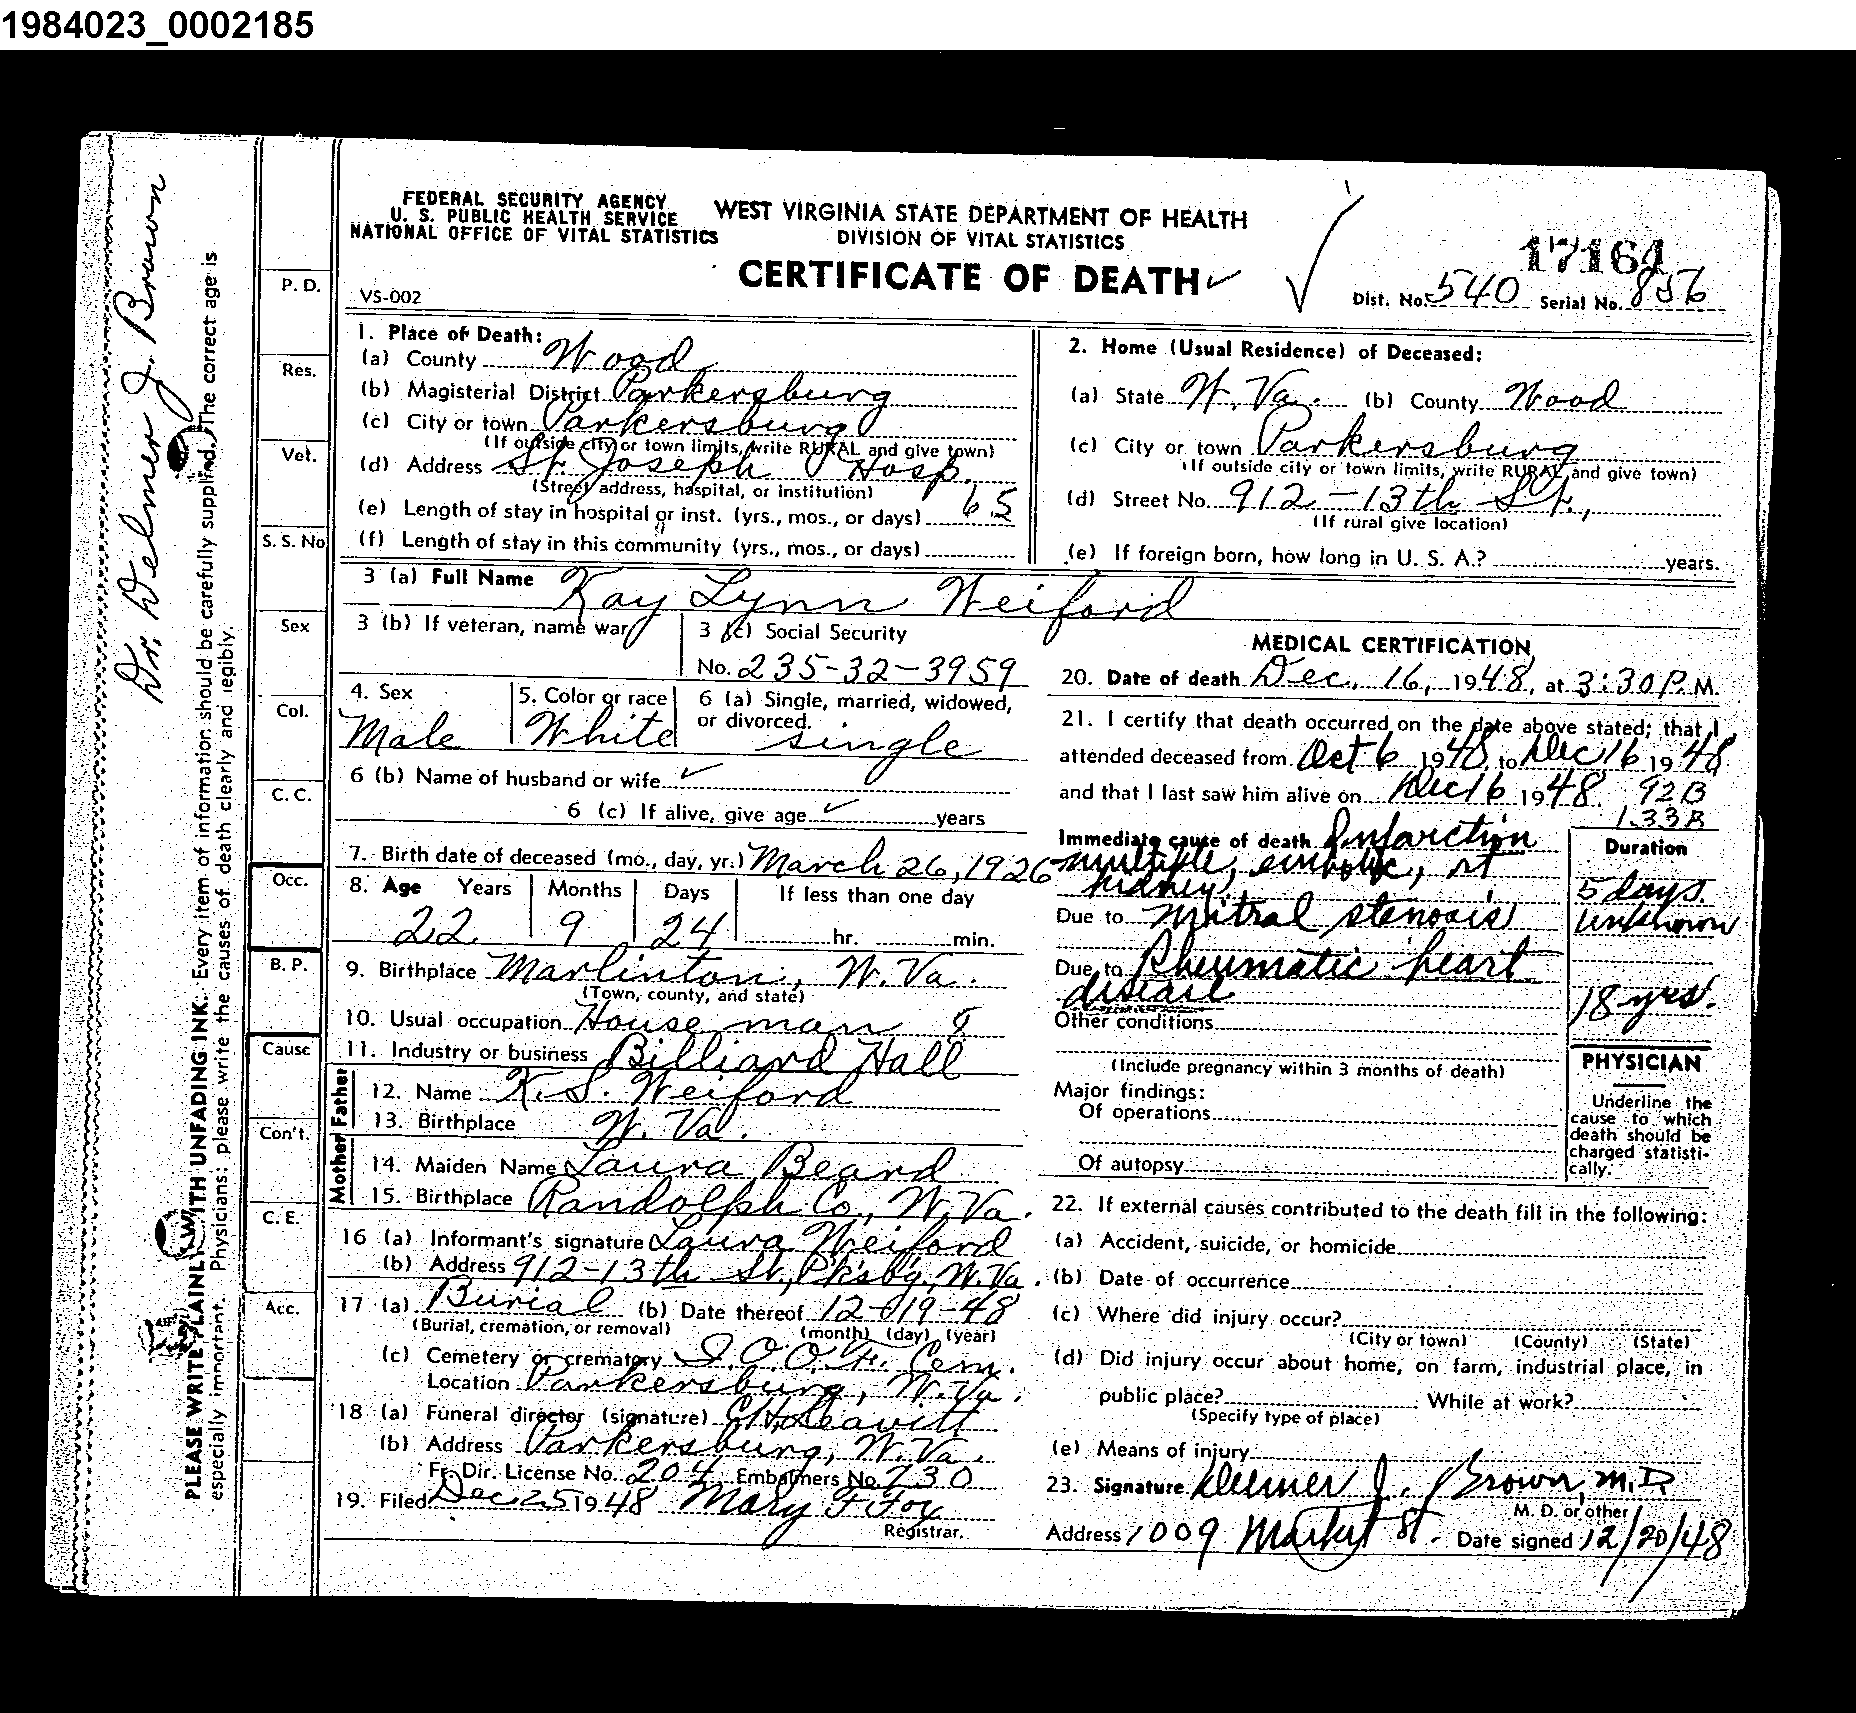 1984023_0002185
FEDERAL SECURITY AGENCY
U. S. PUBLIC HEALTH SERVICE
NATIONAL OFFICE OF VITAL STATISTICS
WEST VIRGINIA STATE DEPARTMENT OF HEALTH
DIVISION OF VITAL STATISTICS
CERTIFICATE OF DEATH
17164
VS-002
Dist. No. 540 Serial No. 856
1. Place of Death:
(a) County Wood
(b) Magisterial District Parkersburg
(c) City or town Parkersburg
(If outside city or town limits, write RURAL and give town)
(d) Address St. Joseph Hosp.
(Street address, hospital, or institution)
(e) Length of stay in hospital or inst. (yrs., mos., or days) 65
(f) Length of stay in this community (yrs., mos., or days)
2. Home (Usual Residence) of Deceased:
(a) State W. Va. (b) County Wood
(c) City or town Parkersburg
(If outside city or town limits, write RURAL and give town)
(d) Street No. 912-13th St.,
(If rural give location)
(e) If foreign born, how long in U. S. A.? years.
3 (a) Full Name Kay Lynn Weiford
3 (b) If veteran, name war
3 (c) Social Security
No. 235-32-3959
4. Sex
Male
5. Color or race
White
6 (a) Single, married, widowed,
or divorced.
single
6 (b) Name of husband or wife
6 (c) If alive, give age years
7. Birth date of deceased (mo., day, yr.) March 26, 1926
8. Age Years Months Days If less than one day
22 9 24 hr. min.
9. Birthplace Marlinton, W. Va.
(Town, county, and state)
10. Usual occupation House man 8
11. Industry or business Billiard Hall
Father
12. Name K. S. Weiford
13. Birthplace W. Va.
Mother
14. Maiden Name Laura Beard
15. Birthplace Randolph Co., W. Va.
16 (a) Informant's signature Laura Weiford
(b) Address 912-13th St., Pksbg, W. Va.
17 (a) Burial (b) Date thereof 12-19-48
(Burial, cremation, or removal) (month) (day) (year)
(c) Cemetery or crematory I. O. O. F. Cem.
Location Parkersburg, W. Va.
18 (a) Funeral director (signature) Leavitt
(b) Address Parkersburg, W. Va.
Fr. Dir. License No. 204 Embalmers No. 730
19. Filed Dec 25 1948 Mary F Fox
Registrar.
MEDICAL CERTIFICATION
20. Date of death Dec. 16, 1948, at 3:30 P. M.
21. I certify that death occurred on the date above stated; that I
attended deceased from Oct 6 1948 to Dec 16 1948
and that I last saw him alive on Dec 16 1948. 92B
133B
Immediate cause of death Infarction
multiple, embolic, rt
kidney
Due to mitral stenosis
Due to Rheumatic heart
disease
Duration
5 days.
unknown
18 yrs.
Other conditions
(Include pregnancy within 3 months of death)
Major findings:
Of operations
Of autopsy
PHYSICIAN
Underline the
cause to which
death should be
charged statisti-
cally.
22. If external causes contributed to the death fill in the following:
(a) Accident, suicide, or homicide
(b) Date of occurrence
(c) Where did injury occur?
(City or town) (County) (State)
(d) Did injury occur about home, on farm, industrial place, in
public place? While at work?
(Specify type of place)
(e) Means of injury
23. Signature Delmer J. Brown, M.D.
M. D. or other
Address 1009 Market St. Date signed 12/20/48
P. D.
Res.
Vet.
S. S. No
Sex
Col.
C. C.
Occ.
B. P.
Cause
Con't.
C. E.
Acc.
Dr. Delmer J. Brown
PLEASE WRITE PLAINLY WITH UNFADING INK. Every item of information should be carefully supplied. The correct age is
especially important. Physicians: please write the causes of death clearly and legibly.